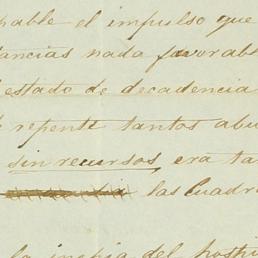 pable el impulso que
tancias nada favorabl
l estado de decadencia
repente tantos abu
sin recursos, era ta
las Cuadr
la inopia del hospi